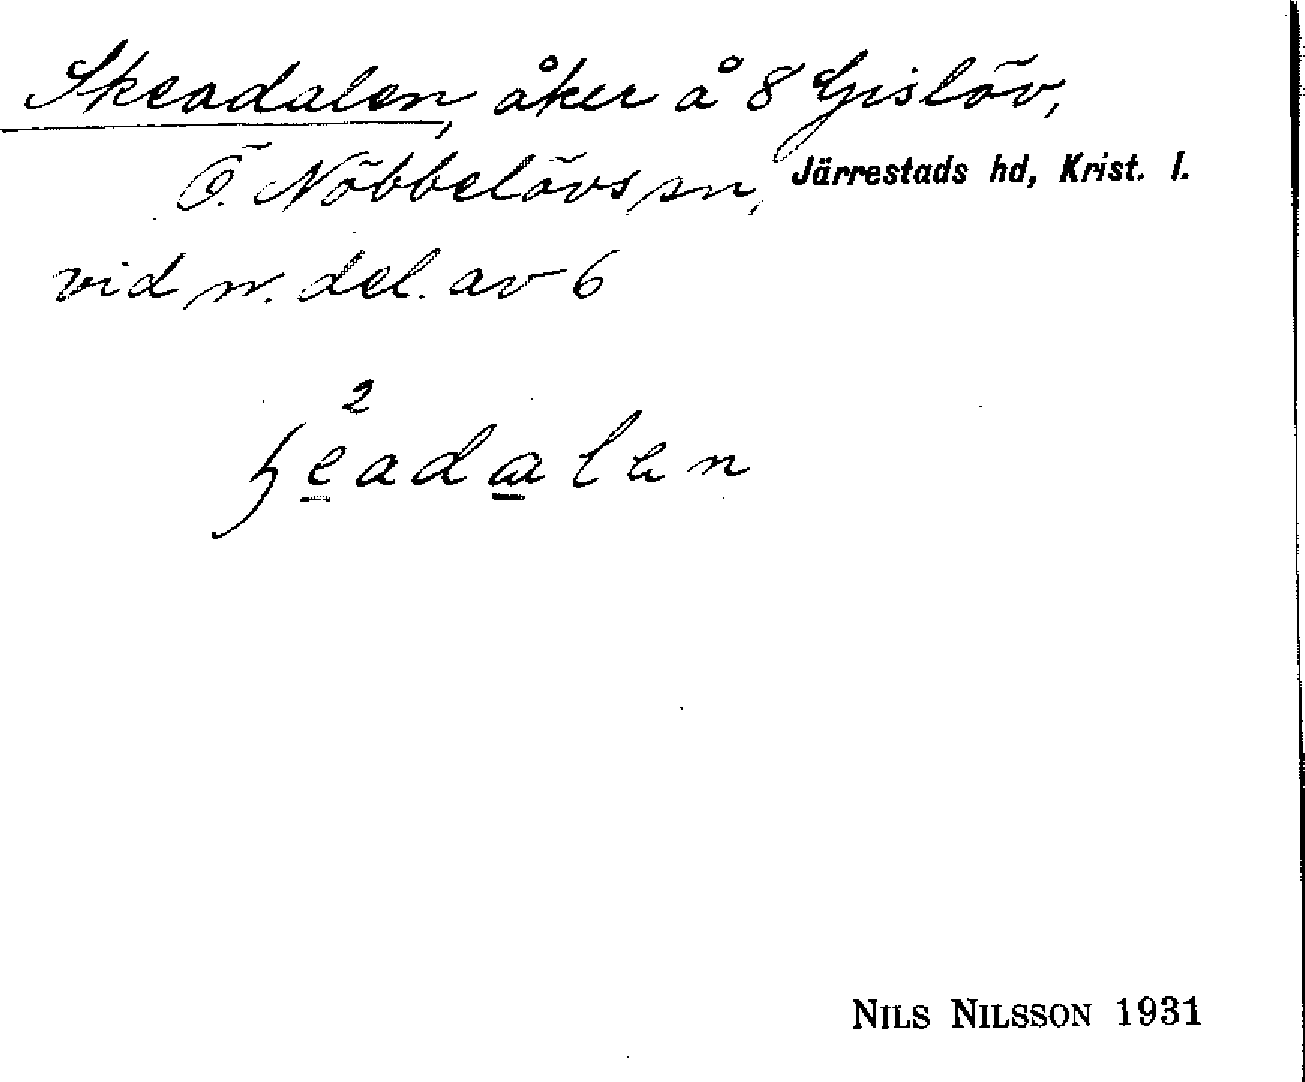 Skeadalen, åker å 8 Gislöv,
Ö. Nöbbelövs sn, Järrestads hd, Krist. l.
vid n. del. av 6
2
ɧeadalen
NILS NILSSON 1931